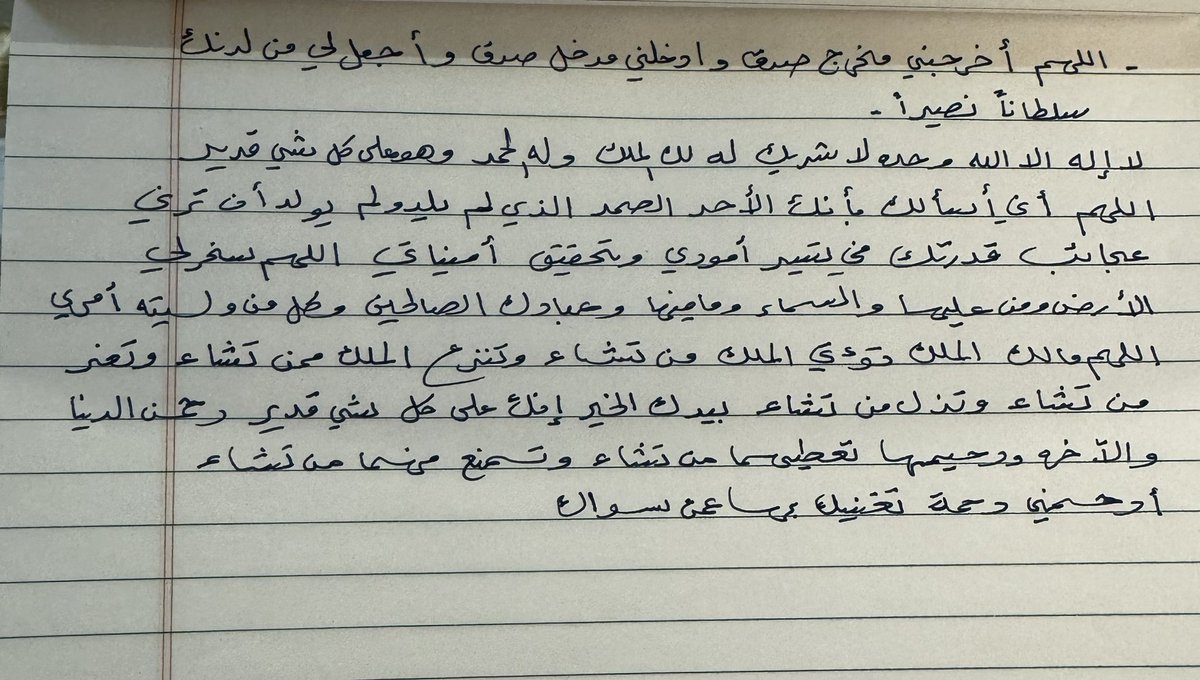 - اللهم أخرجني مخرج صدق وادخلني مدخل صدق وأجعل لي من لدنك
سلطاناً نصيراً -
لا إله الا الله وحده لا شريك له لك الملك وله الحمد وهو على كل شي قدير
اللهم أني أسألك بأنك الأحد الصمد الذي لم يلد ولم يولد أن تريني
عجائب قدرتك في تيسير أموري وتحقيق أمنياتي اللهم سخر لي
الأرض ومن عليها والسماء ومافيها وعبادك الصالحين وكل من وليته أمري
اللهم مالك الملك تؤتي الملك من تشاء وتنزع الملك ممن تشاء وتعز
من تشاء وتذل من تشاء بيدك الخير إنك على كل شي قدير رحمن الدينا
والآخره ورحيمها تعطيهما من تشاء وتمنع منهما من تشاء
أرحمني رحمة تغنيك بها عمن سواك